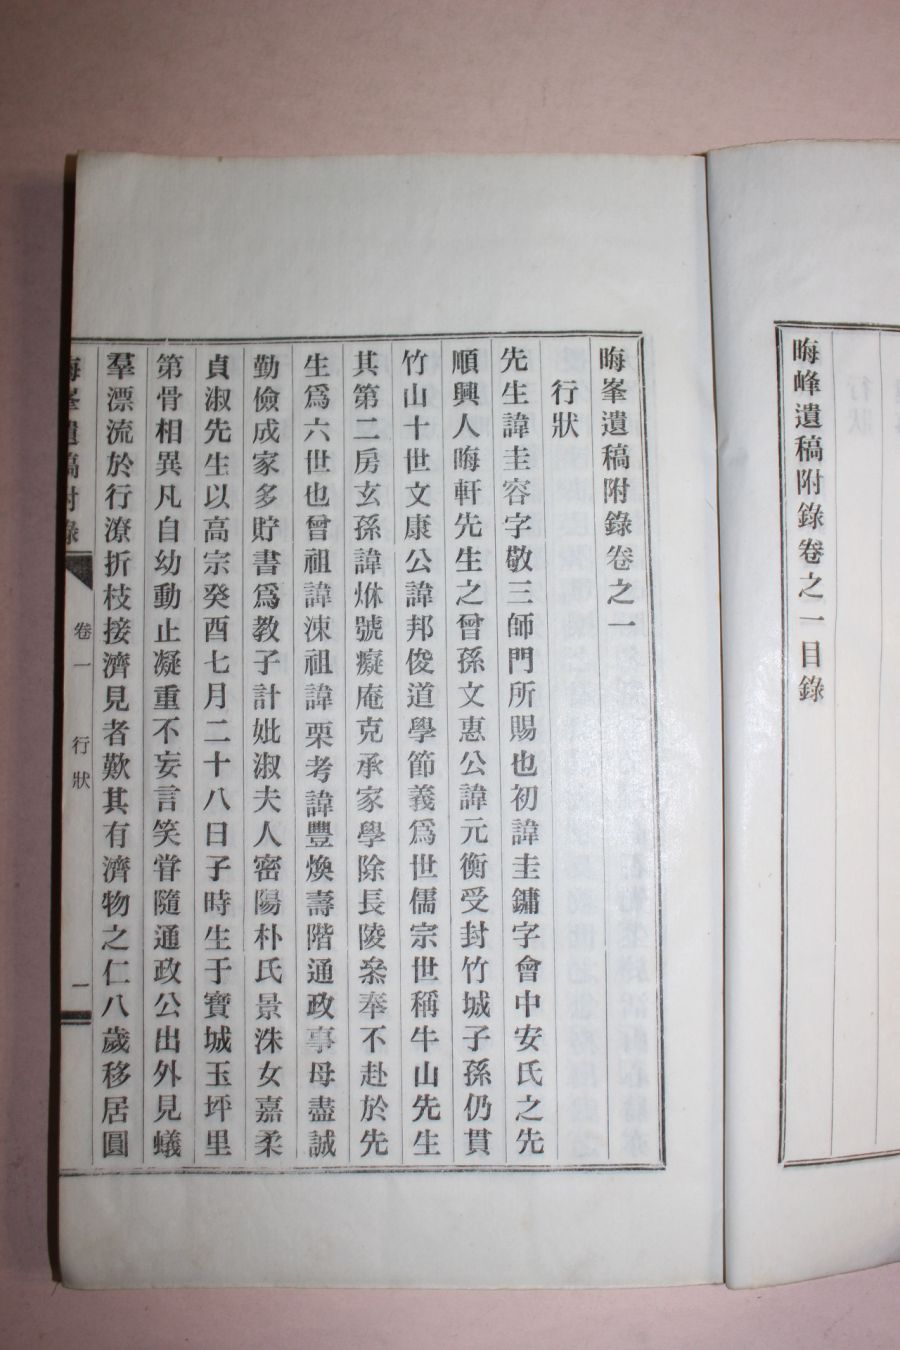 晦峰遺稿附錄卷之一目錄
晦峯遺稿附錄卷之一
行狀
先生諱圭容字敬三師門所賜也初諱圭鏞字會中安氏之先
順興人晦軒先生之曾孫文惠公諱元衡受封竹城子孫仍貫
竹山十世文康公諱邦俊道學節義爲世儒宗世稱牛山先生
其第二房玄孫諱烋號癡庵克承家學除長陵叅奉不赴於先
生爲六世也曾祖諱涑祖諱栗考諱豐煥壽階通政事母盡誠
勤儉成家多貯書爲教子計妣淑夫人密陽朴氏景洙女嘉柔
貞淑先生以高宗癸酉七月二十八日子時生于寶城玉坪里
第骨相異凡自幼動止凝重不妄言笑甞隨通政公出外見蟻
羣漂流於行潦折枝接濟見者歎其有濟物之仁八歲移居圓
晦峯遺稿附錄 卷一 行狀 一